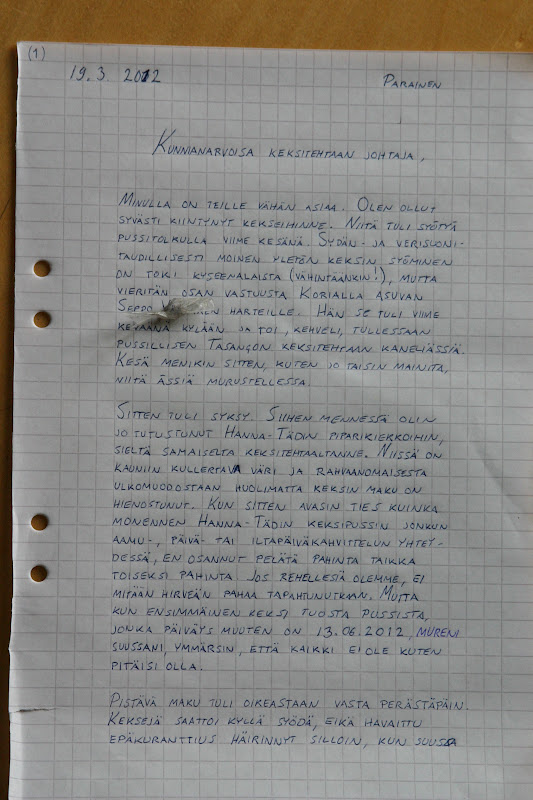 (1)
19.3.2012 PARAINEN
KUNNIANARVOISA KEKSITEHTAAN JOHTAJA,
MINULLA ON TEILLE VÄHÄN ASIAA. OLEN OLLUT
SYVÄSTI KIINTYNYT KEKSEIHINNE. NIITÄ TULI SYÖTYÄ
PUSSITOLKULLA VIIME KESÄNÄ. SYDÄN- JA VERISUONI-
TAUDILLISESTI MOINEN YLETÖN KEKSIN SYÖMINEN
ON TOKI KYSEENALAISTA (VÄHINTÄÄNKIN!), MUTTA
VIERITÄN OSAN VASTUUSTA KORIALLA ASUVAN
SEPPO HARTEILLE. HÄN SE TULI VIIME
KEVÄÄNÄ KYLÄÄN JA TOI, KEHVELI, TULLESSAAN
PUSSILLISEN TASANGON KEKSITEHTAAN KANELIÄSSIÄ.
KESÄ MENIKIN SITTEN, KUTEN JO TAISIN MAINITA,
NIITÄ ÄSSIÄ MURUSTELLESSA.
SITTEN TULI SYKSY. SIIHEN MENNESSÄ OLIN
JO TUTUSTUNUT HANNA-TÄDIN PIPARIKIEKKOIHIN,
SIELTÄ SAMAISELTA KEKSITEHTAALTANNE. NIISSÄ ON
KAUNIIN KULLERTAVA VÄRI JA RAHVAANOMAISESTA
ULKOMUODOSTAAN HUOLIMATTA KEKSIN MAKU ON
HIENOSTUNUT. KUN SITTEN AVASIN TIES KUINKA
MONENNEN HANNA-TÄDIN KEKSIPUSSIN JONKUN
AAMU-, PÄIVÄ- TAI ILTAPÄIVÄKAHVITTELUN YHTEY-
DESSÄ, EN OSANNUT PELÄTÄ PAHINTA TAIKKA
TOISEKSI PAHINTA. JOS REHELLESIÄ OLEMME, EI
MITÄÄN HIRVEÄN PAHAA TAPAHTUNUTKAAN. MUTTA
KUN ENSIMMÄINEN KEKSI TUOSTA PUSSISTA,
JONKA PÄIVÄYS MUUTEN ON 13.06.2012, MURENI
SUUSSANI, YMMÄRSIN, ETTÄ KAIKKI EI OLE KUTEN
PITÄISI OLLA.
PISTÄVÄ MAKU TULI OIKEASTAAN VASTA PERÄSTÄPÄIN.
KEKSEJÄ SAATTOI KYLLÄ SYÖDÄ, EIKÄ HAVAITTU
EPÄKURANTTIUS HÄIRINNYT SILLOIN, KUN SUUSSA